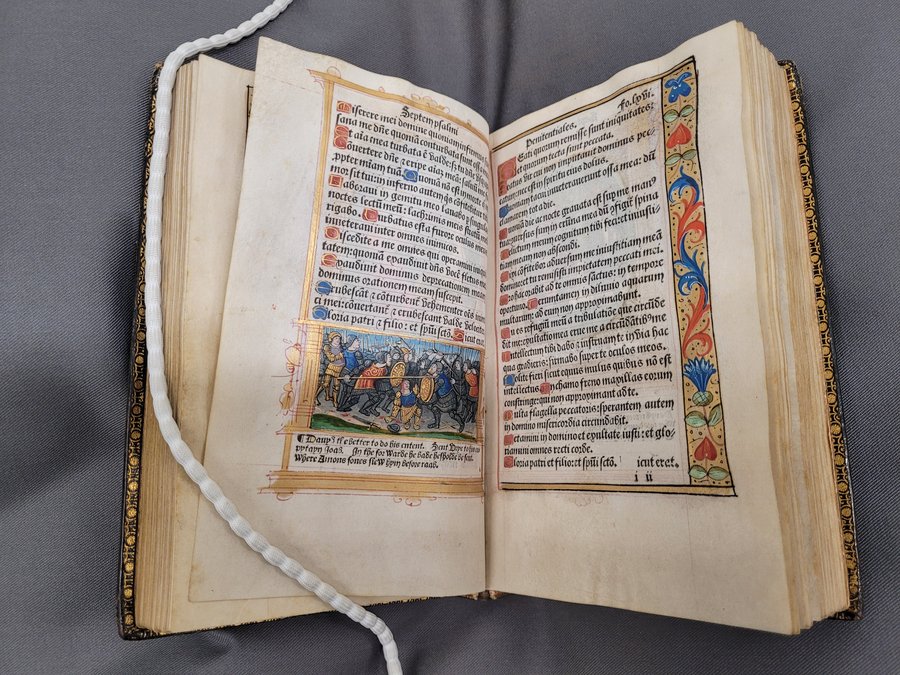 Septem psalmi
Miserere mei domine quoniam infirmus
sana me dñe quoniã conturbata sunt ossa
Et aĩa mea turbata ē valde: sz tu dñe
Cõvertere dñe & eripe aĩaz meã: saluũ
ppter miam tuã. Quoniã nõ est in morte
mor sit tui: in inferno autem
Laboraui in gemitu meo lauabo singulas
noctes lectũ meũ: lachrimis meis stratũ meũ
rigabo. Turbatus est a furore oculus meus
inueteraui inter omnes inimicos
Discedite a me omnes qui operamini
tatem: quoniã exaudiuit dñs vocē fletus
Exaudiuit dominus deprecationem meam
dominus orationem meam suscepit.
Erubescãt & cõturbent vehementer oēs inimi
ci mei: cõuertant & erubescant valde velociter
Gloria patri & filio: et spũi sctõ. Sicut erat
¶ Dauyd the better to do his entent. Sent Urye to
captayn Joab. In the for warde he bade he sholde be sent.
Where Amons sones slew hym before raab.
Penitentiales. Fo. lxvi.
Beati quorum remisse sunt iniquitates:
et quorum tecta sunt peccata.
Beatus vir cui non imputauit dominus pec
catum: nec est in spiritu eius dolus.
Quoniã tacui inueterauerunt ossa mea: dũ
clamarem tota die.
Quoniã die ac nocte grauata est sup me man9
tua: cõuersus sum in erũna mea dũ cõfigit spina
Delictum meum cognitum tibi feci: et iniusti
tiam meam non abscondi.
Dixi cõfitebor aduersum me iniustitiam meã
domino: et tu remisisti impietatem peccati mei:
Pro hac orabit ad te omnis sanctus: in tempore
oportuno. Veruntamen in diluuio aquarum
multarum: ad eum non approximabunt.
Tu es refugiũ meũ a tribulatiõe que circũde
dit me: exultatio mea erue me a circũdãtib9 me
Intellectum tibi dabo & instruam te in via hac
qua gradieris: firmabo super te oculos meos.
Nolite fieri sicut equus & mulus quibus nõ est
intellectus. In chamo & freno maxillas eorum
constringe: qui non approximant ad te.
Multa flagella peccatoris: sperantem autem
in domino misericordia circundabit.
Letamini in domino et exultate iusti: et glo
riamini omnes recti corde.
Gloria patri et filio: et spũi sctõ. icut erat.
i ii